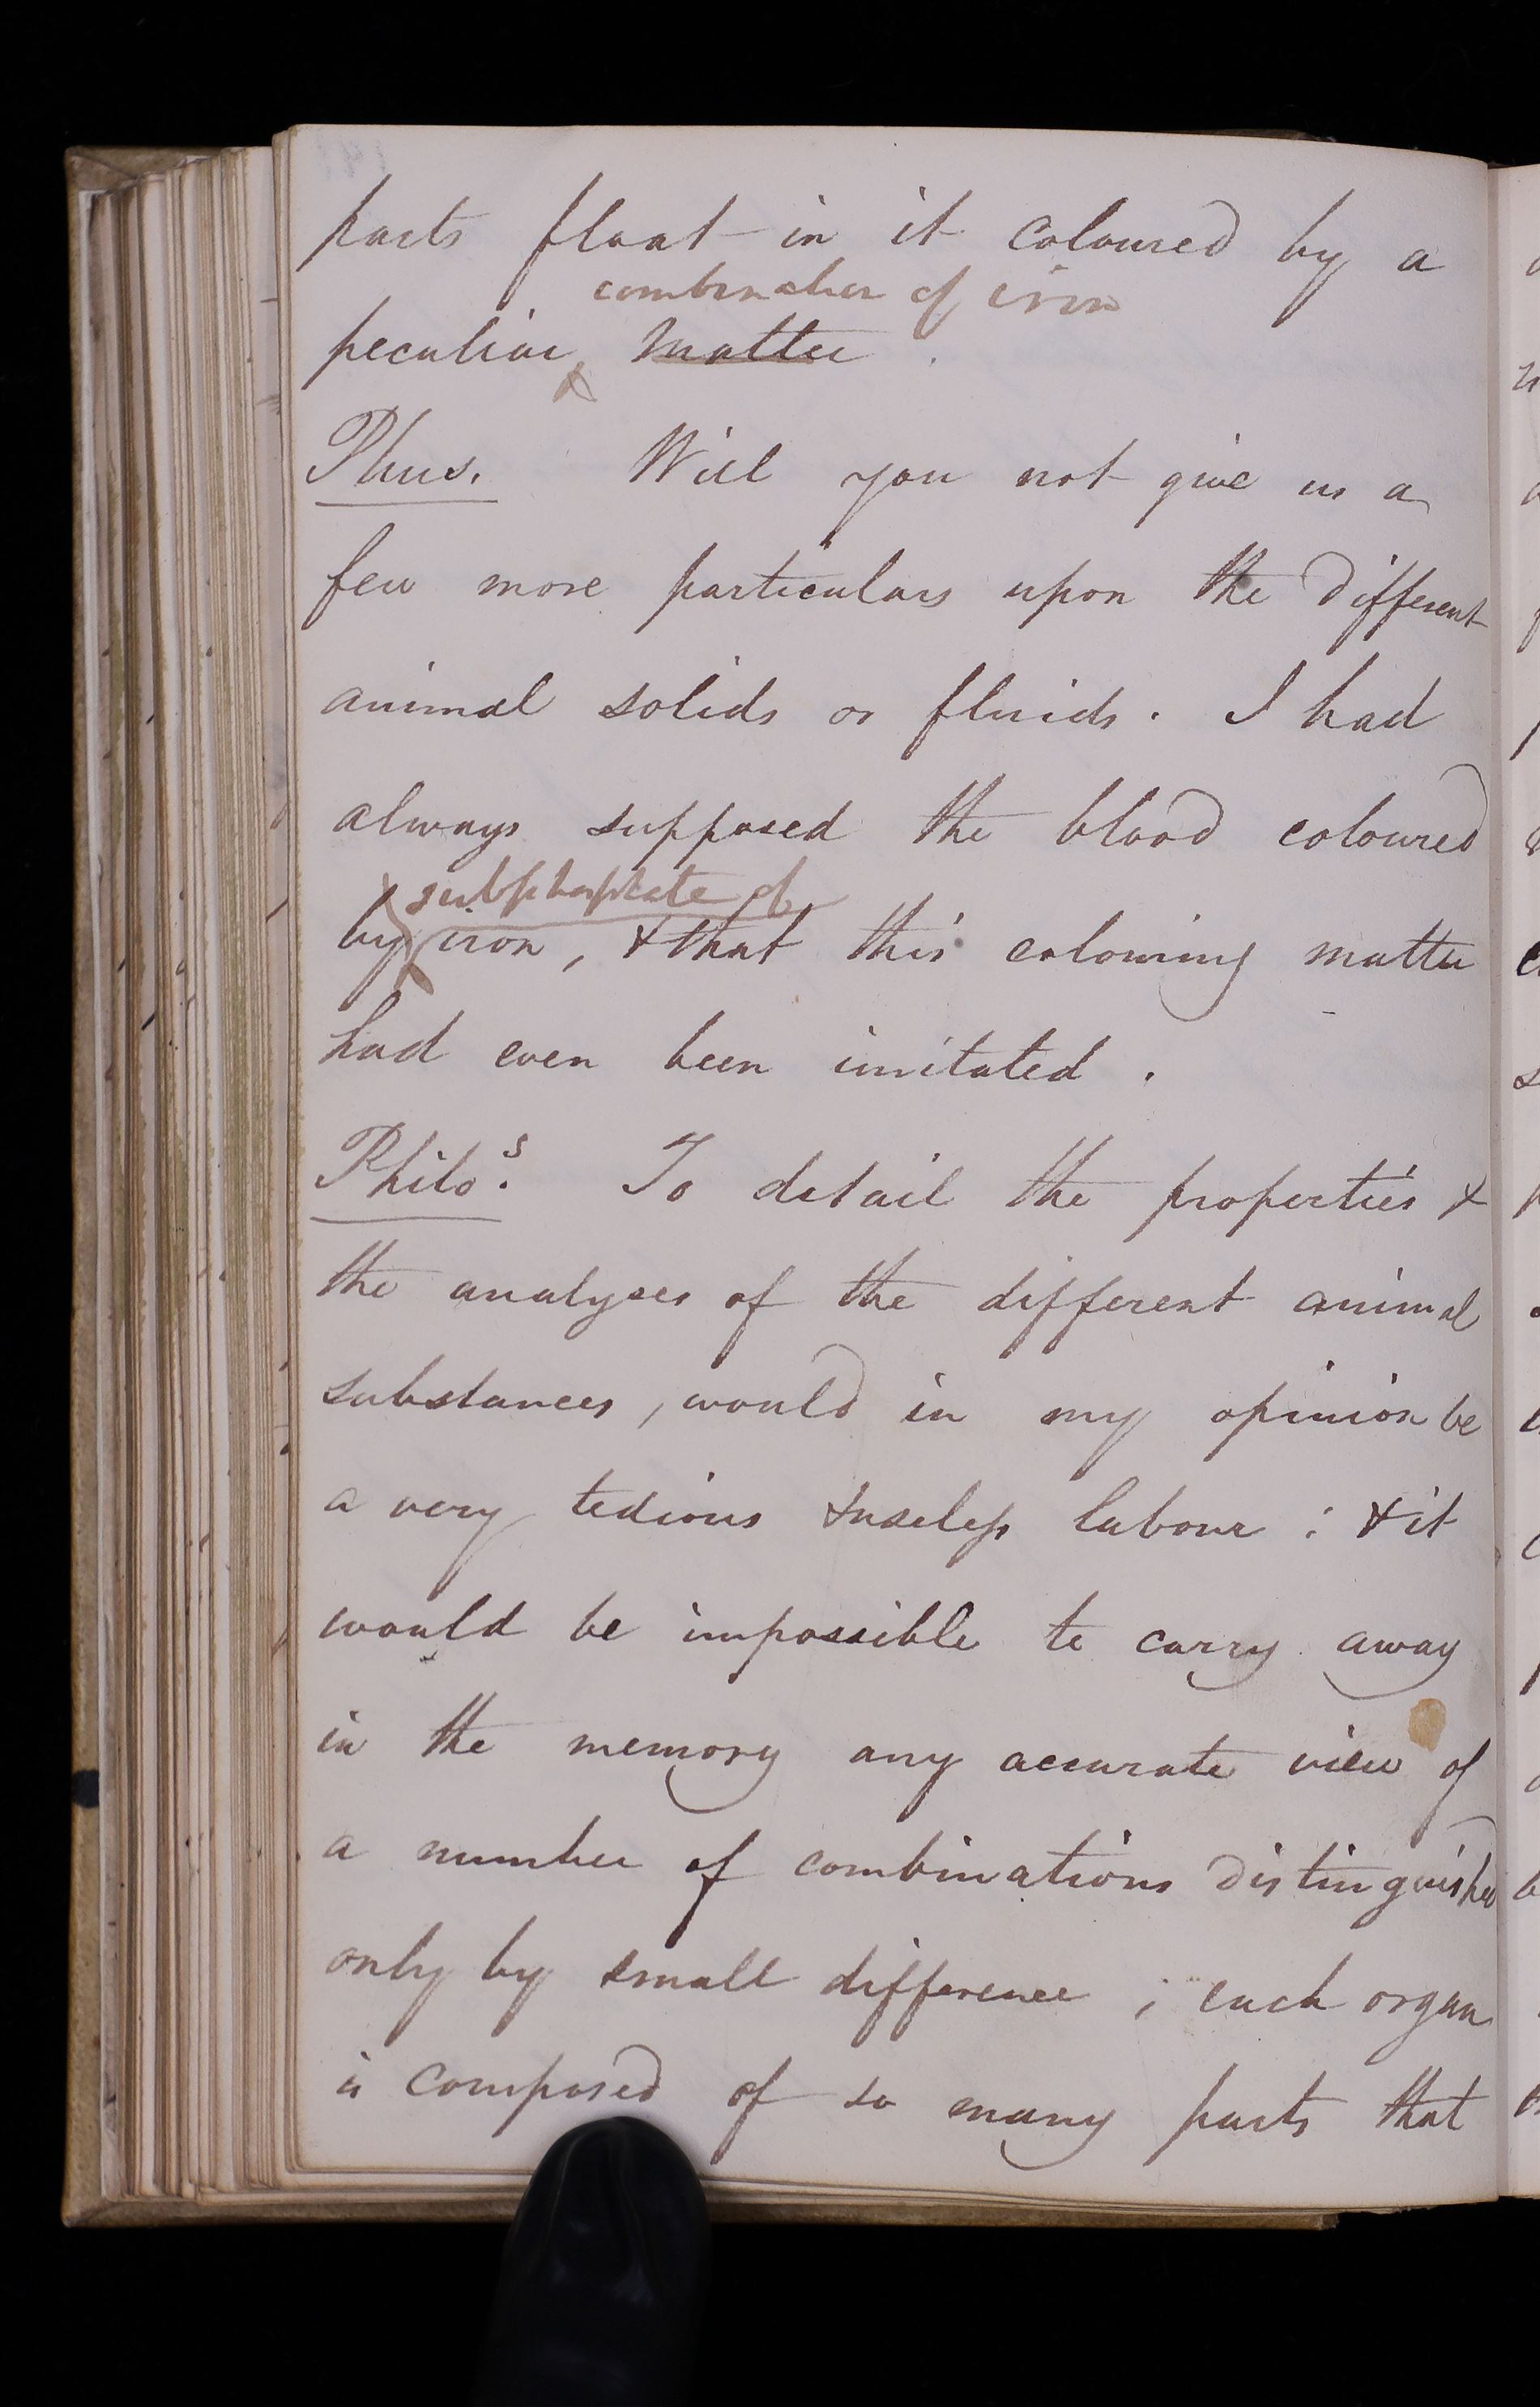 parts float in it coloured by a
combination of iron
peculiar matter .
Phus. Will you not give us a
few more particulars upon the different
animal solids or fluids. I had
always supposed the blood coloured
subphosphate of
by iron, & that this colouring matter
had even been imitated .
Philo.s To detail the properties &
the analyses of the different animal
substances, would in my opinion be
a very tedious & useless labour : & it
would be impossible to carry away
in the memory any accurate view of
a number of combinations distinguished
only by small difference ; each organ
is composed of so many parts that